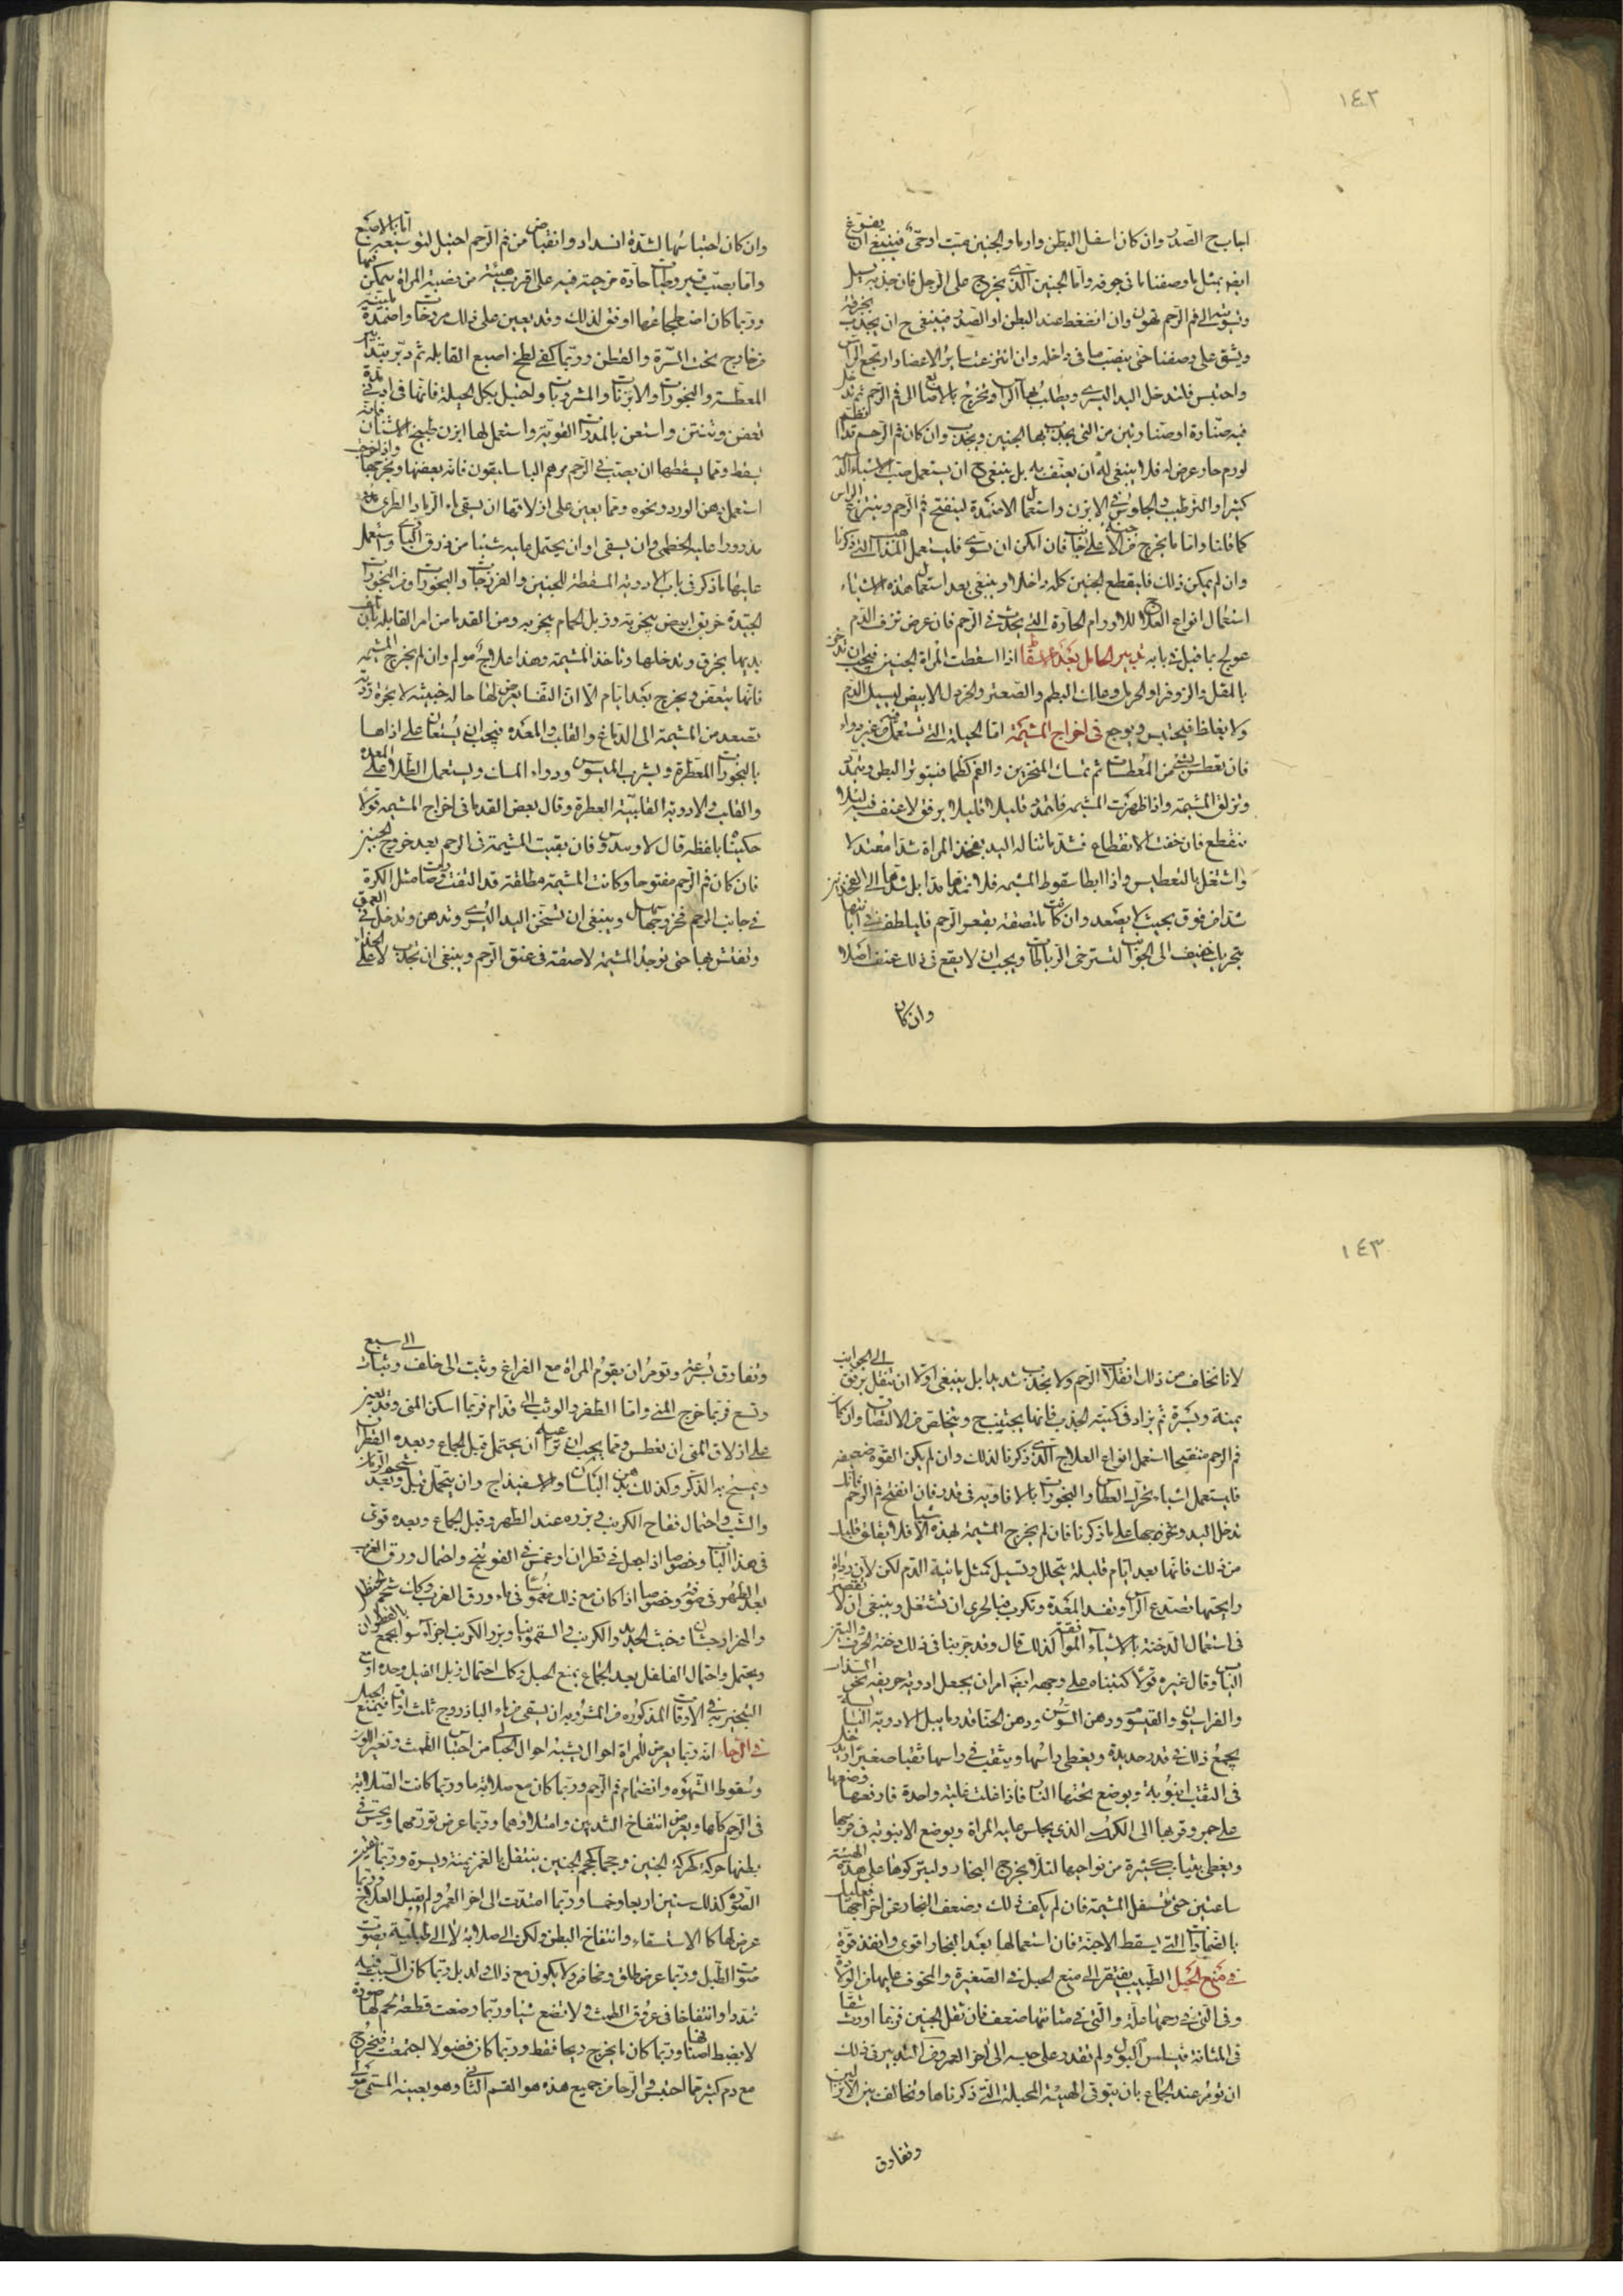 ١٤٢
اجابح الصدر وان كان اسفل البطن وارما والجنين ميت اوحى فينبغى ان يفتوغ
ايضه بمثل ما وصفنا ما فى جوفه واما الجنين الذى يخرج على الرجل فان جذبه يسهل
وتسويته الى فم الرحم تهون وان انضغط عند البطن او الصدر فينبغى ح ان يجذب بخرقة
ويشق على وصفنا حتى ينصب ما فى داخله وان انتزعت سائر الاعضا وارتجع الراس
واحتبس فلتدخل اليد اليسرى ويطلب بها الراس وتخرج بالاصابع الى فم الرحم ثم تدخل
فيه صنارة او صنارتين من التى يجذب بها الجنين ويجذب وان كان فم الرحم قد انضم
لورم حار عرض له فلا ينبغى له ان يعنف به بل ينبغى ح ان يستعمل صب الاشياء الدسمة
كثيرا والترطيب والجلوس فى الابزن واستعمال الاضمدة لينفتح فم الرحم وينتزع الراس
كما قلنا واما ما يخرج من الاجنة على جانب فان امكن ان يسوى فليستعمل المذاهب التى ذكرنا
وان لم يمكن ذلك فليقطع الجنين كله داخلا وينبغى بعد استعمال هذه الاشياء
استعمال انواع العلاج للاورام الحارة التى يحدث فى الرحم فان عرض نزف الدم
عولج بما قيل فى بابه تدبير الحامل بعد الاسقاط اذا اسقطت المراة الجنين فيجب ان تدخن
بالمقل والزوفرا والحرمل وعلك البطم والصعتر والخردل الابيض ليسيل الدم
ولا يغلظ فيحتبس ويوجع فى اخراج المشيمة اما الحيلة التى تستعمل من غير دواء
فان تعطس بشئ من المعطسات ثم تمسك المنخرين والفم كظما فيتوتر البطن ويتمدد
وتزلق المشيمة واذا ظهرت المشيمة فلتمد قليلا قليلا برفق لا عنف فيه ليلا
تنقطع فان خفت الانقطاع فشد ما تناله اليد بفخذ المراة شدا معتدلا
واشتغل بالتعطيس واذا ابطا سقوط المشيمة فلا تمدها مدا بل شدها الى الفخذين
شدا من فوق بحيث لا يصعد وان كانت ملتصقة بقعر الرحم فليلطف فى ابانتها
بتحريك خفيف الى الجوانب لتسترخى الرباطات ويجب ان لا يقع فى ذلك عنف اصلا
وان كان
وان كان احتباسها لشدة انسداد وانقباض من فم الرحم احتيل لتوسيعه اما بالاصبع
واما بصب قيروطيات حارة مرخية فيه على اقرب هيئة من نصبة المراة يمكن فيها
وربما كان اضطجاعها اوفق لذلك وقد يعين على ذلك مروخات واضمدة ملينة
من خارج تحت السرة والقطن وربما كفى لطخ اصبع القابلة ثم دبر بتدبير
المعطسة والبخورات والابزنات والمشروبات واحتيل بكل الحيلة فانها فى ايام قليلة
تعفن وتنتن واستعن بالمدرات القوية واستعمل لها ابزن طبيخ الاشنان فانه
يسقط ومما يسقطها ان يصب فى الرحم مرهم الباسليقون فانه يعفنها ويخرجها واذا خرجت
استعمل دهن الورد ونحوه ومما يعين على ازلاقها ان يسقى ماء الرماد الطرى
مذرورا عليه الخطمى وان يسقى او ان يحتمل عليه شيئا من ذرق البازى واستعمل
عليها ما ذكر فى باب الادوية المسقطة للجنين والفرزجات والبخورات ومن البخورات
الجيدة خربق ابيض يبخر به وزبل الحمام يبخر به ومن القدما من امر القابلة بان تلف
يديها بخرق وتدخلها وتاخذ المشيمة وهذا علاج مولم وان لم يخرج المشيمة
فانها تتعفن ويخرج بعد ايام الا ان النفساء يعرض لها حالة خبيثة لابخرة ردية
تصعد من المشيمة الى الدماغ والقلب والمعدة فيجب ان يستعان على اذاها
بالبخورات المعطرة وبشرب الميسوسن ودواء المسك ويستعمل الطلا على المعدة
والقلب والادوية القلبية العطرة وقال بعض القدما فى اخراج المشيمة قولا
حكيناه بلفظه قال لاوسدس فان بقيت المشيمة فى الرحم بعد خروج الجنين
فان كان فم الرحم مفتوحا وكانت المشيمة مطلقة قد التفت وصارت مثل الكرة
فى جانب الرحم فخروجها سهل وينبغى ان تسخن اليد اليسرى وتدهن وتدخل فى العمق
وتفتش بها حتى توجد المشيمة لاصقة فى عنق الرحم وينبغى ان تجذب لا على الحذاء
١٤٣
لانا نخاف من ذلك انقلاب الرحم ولا بجذب شديد بل ينبغى اولا ان تنقل برفق الى الجوانب
يمنة ويسرة ثم يزاد فى كمية الجذب فانها يجيب ح ويتخلص من الالتصاق وان كان
فم الرحم منضما استعمل انواع العلاج الذى ذكرنا لذلك وان لم يكن القوة ضعيفة
فليستعمل اشياء يحرك العطاس والبخورات بالافاويه فى قدر فان انفتح فم الرحم فانك
تدخل اليد وتخرجها على ما ذكرنا فان لم يخرج المشيمة لهذه الاشياء فلا يقلق قليلك
من ذلك فانها بعد ايام قليلة يتحلل ويسيل كمثل مائية الدم لكن لان رداة
رايحتها تصدع الراس وتفسد المعدة وتكرب فبالحرى ان تشتغل وينبغى ان لا تقصر
فى استعمال الدخنة بالاشياء الموافقة لذلك قال وقد جربنا فى ذلك دخنة الحرف والتين
اليابس وقال غيره قولا كتبناه على وجهه ايضه امر ان يجعل ادوية حريفه نحو السذاب
والفراسيون والقيصوم ودهن السوسن ودهن الحنا قدر ما يبل الادوية اليابسة
يجمع ذلك فى قدر حديدة ويغطى راسها ويثقب فى راسها ثقبا صغيرا ويدخل
فى الثقب انبوبة ويوضع تحتها النار فاذا غلت غلية واحدة فارفعها وضعها
على جمر وقربها الى الكرسى الذى يجلس عليه المراة ويوضع الانبوبة فى فرجها
ويغطى بثياب كثيرة من نواحيها لئلا يخرج البخار وليتركوها على هذه الهيئة
ساعتين حتى تسفل المشيمة فان لم يكف ذلك وضعف البخار عن اخراجها فعليك
بالضمادات التى يسقط الاجنة فان استعمالها بعد البخار اقوى وانفذ قوة
فى منع الحبل الطبيب يفتقر الى منع الحبل فى الصغيرة والمخوف عليها من الولادة
وفى التى فى رحمها علة والتى فى مثانتها ضعف فان ثقل الجنين فربما اورث شقا
فى المثانة فيسلس البول ولم تقدر على حبسه الى اخر العمر ومن التدبير فى ذلك
ان تومر عند الجماع بان يتوقى الهيئة المحبلة التى ذكرناها وتخالف بين الانزالين
وتفارق
وتفارق بسرعة وتومر ان يقوم المراة مع الفراغ وتثب الى خلف وثبات الى سبع
وتسع فربما خرج المنى واما الطفر والوثب الى قدام فربما اسكن المنى وقد يعين
على ازلاق المنى ان تعطس ومما يجب ان تراعيه ان يحتمل قبل الجماع وبعده القطران
ويمسح به الذكر وكذلك دهن البلسان والاسفيذاج وان يتحمل قبل وبعد شحم الرمان
والشب واحتمال فقاح الكرنب وبزره عند الطهر وقبل الجماع وبعده قوى
فى هذا الباب وخصوصا اذا جعل فى قطران او غمس فى الفوتنج واحتمال ورق الغرب
بعد الطهر فى صوفة وخصوصا اذا كان مع ذلك مغموسا فى ماء ورق الغرب وكذلك شحم الحنظل
والهزارجشان وخبث الحديد والكرنب والسقمونيا وبزر الكرنب اجزاء سوا يجمع بالقطران
ويحتمل واحتمال الفلفل بعد الجماع يمنع الحبل وكذلك احتمال زبل الفيل وحده او
التبخير به فى الاوقات المذكورة من المشروبة ان يسقى من ماء الباذروج ثلث اواق فيمنع الحبل
فى الرجا انه ربما يعرض للمراة احوال يشبه احوال الحبالى من احتباس الطمث وتغير اللون
وسقوط الشهوة وانضمام فم الرحم وربما كان مع صلابة ما وربما كانت الصلابة
فى الرحم كلها ويعرض انتفاخ الثديين وامتلاؤهما وربما عرض تورمهما ويحس فى
بطنها حركة كحركة الجنين وحجما كحجم الجنين ينتقل بالغمز يمنة ويسرة وربما
الصورة كذلك سنين اربعا وخمسا وربما امتدت الى اخر العمر ولم يقبل العلاج وربما
عرض لها كالاستسقاء وانتفاخ البطن ولكن الى صلابة لا الى طبلية يصوت
صوت الطبل وربما عرض طلق ومخاض ولا يكون مع ذلك ولد بل ربما كان السبب فيه
تمددا وانتفاخا فى عروق الطمث ولا تضع شيئا وربما وضعت قطعة لحم لها صورة
لا يضبط اصنافها وربما كان ما يخرج ريحا فقط وربما كان فضولا اجتمعت فيخرج
مع دم كثير مما احتبس والرجا من جميع هذه هو القسم الثانى وهو بعينه المسمى مولى